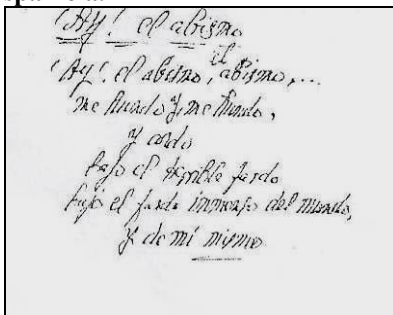 ¡AY! el abismo
el
¡Ay!, el abismo, abismo,...
me hundo y me hundo,
y
bajo el terrible fardo
bajo el fardo inmenso del mundo,
y de mí mismo